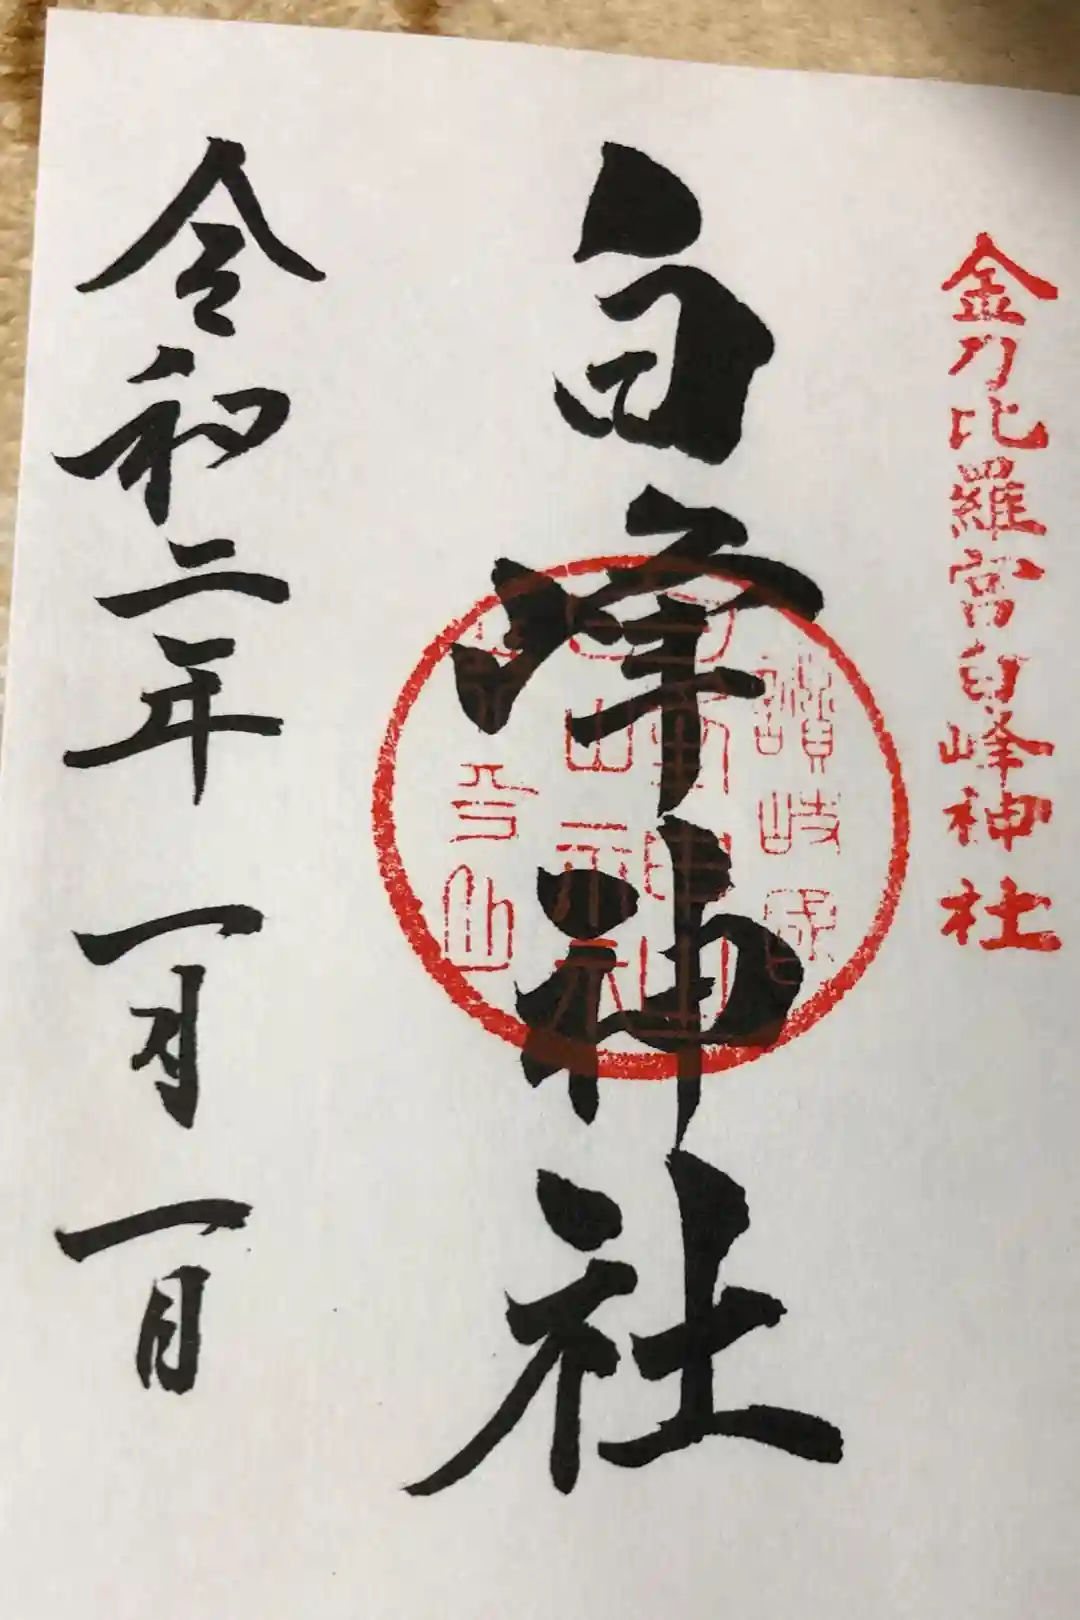 金刀比羅宮白峰神社
白峰神社
讃岐國
令和二年一月一日